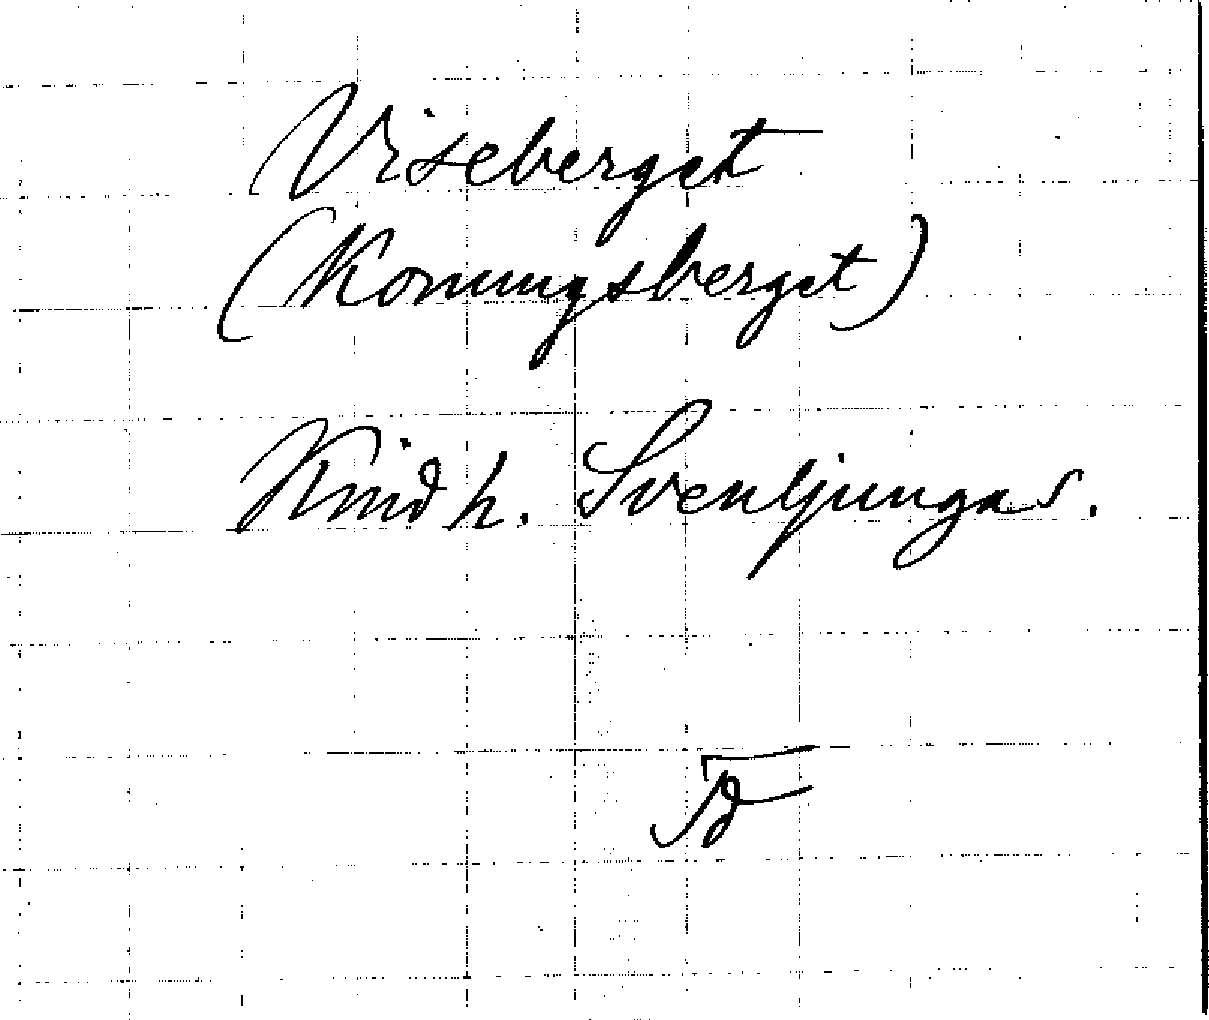 Viseberget
(Konungsberget)
Kind h. Svenljunga s.